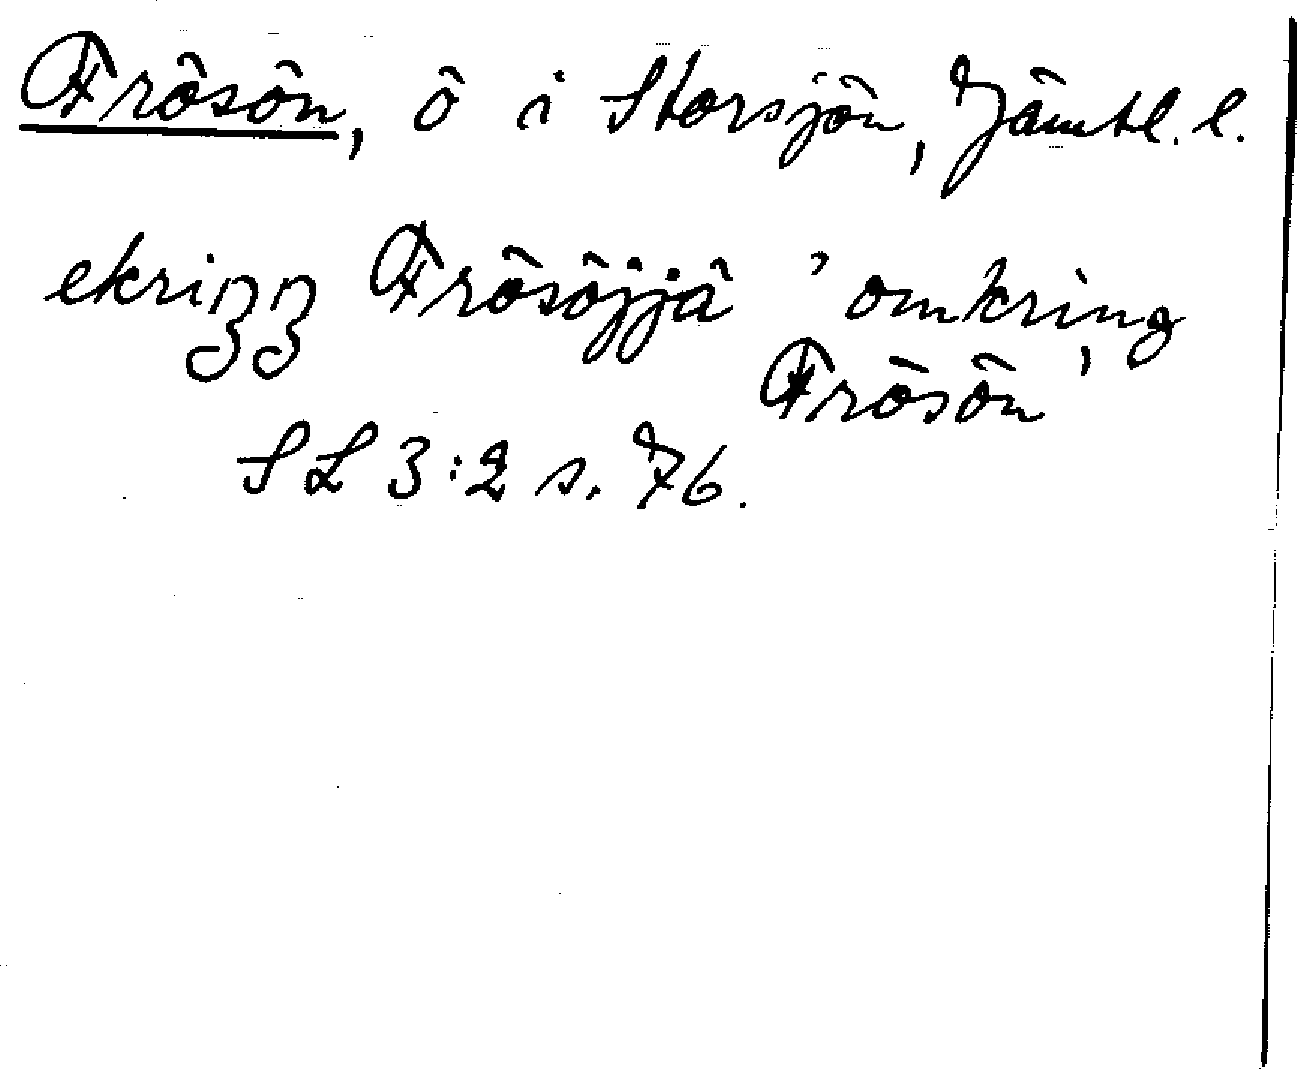 Frösön, ö i Storsjön, Jämtl. l.
ekriŋŋ Frösöjjä 'omkring
Frösön'
SL 3:2 s. 76.